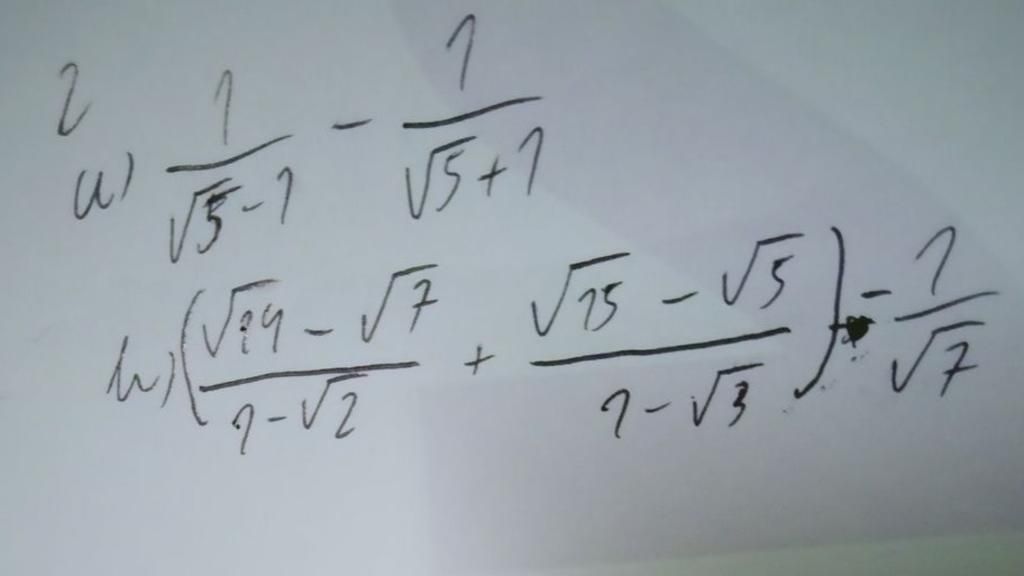 2
a) \frac{1}{\sqrt{5}-1} - \frac{1}{\sqrt{5}+1}
b) \left(\frac{\sqrt{14}-\sqrt{7}}{1-\sqrt{2}} + \frac{\sqrt{15}-\sqrt{5}}{1-\sqrt{3}}\right) - \frac{1}{\sqrt{7}}